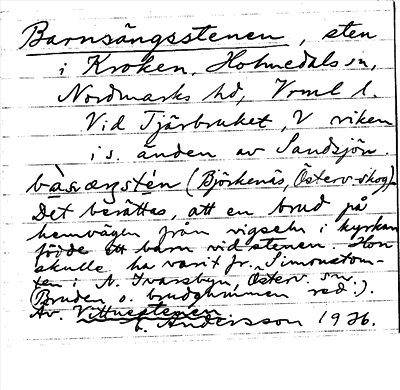 Barnsängsstenen, sten
i Kroken, Holmedals sn,
Nordmarks hd, Vrml l.
Vid Tjärbruket, V viken
i s. änden av Sandsjön.
(Björkenäs, Österv. skog).
Det berättas, att en brud på
hemvägen från vigseln i kyrkan
födde ett barn vid stenen. Hon
skulle ha varit fr. Simonstom-
ten i N. Ivarsbyn, Österv. sn.
(Bruden o. brudgummen red.).
Äv. Vittnestenen
E. Andersson 1926.